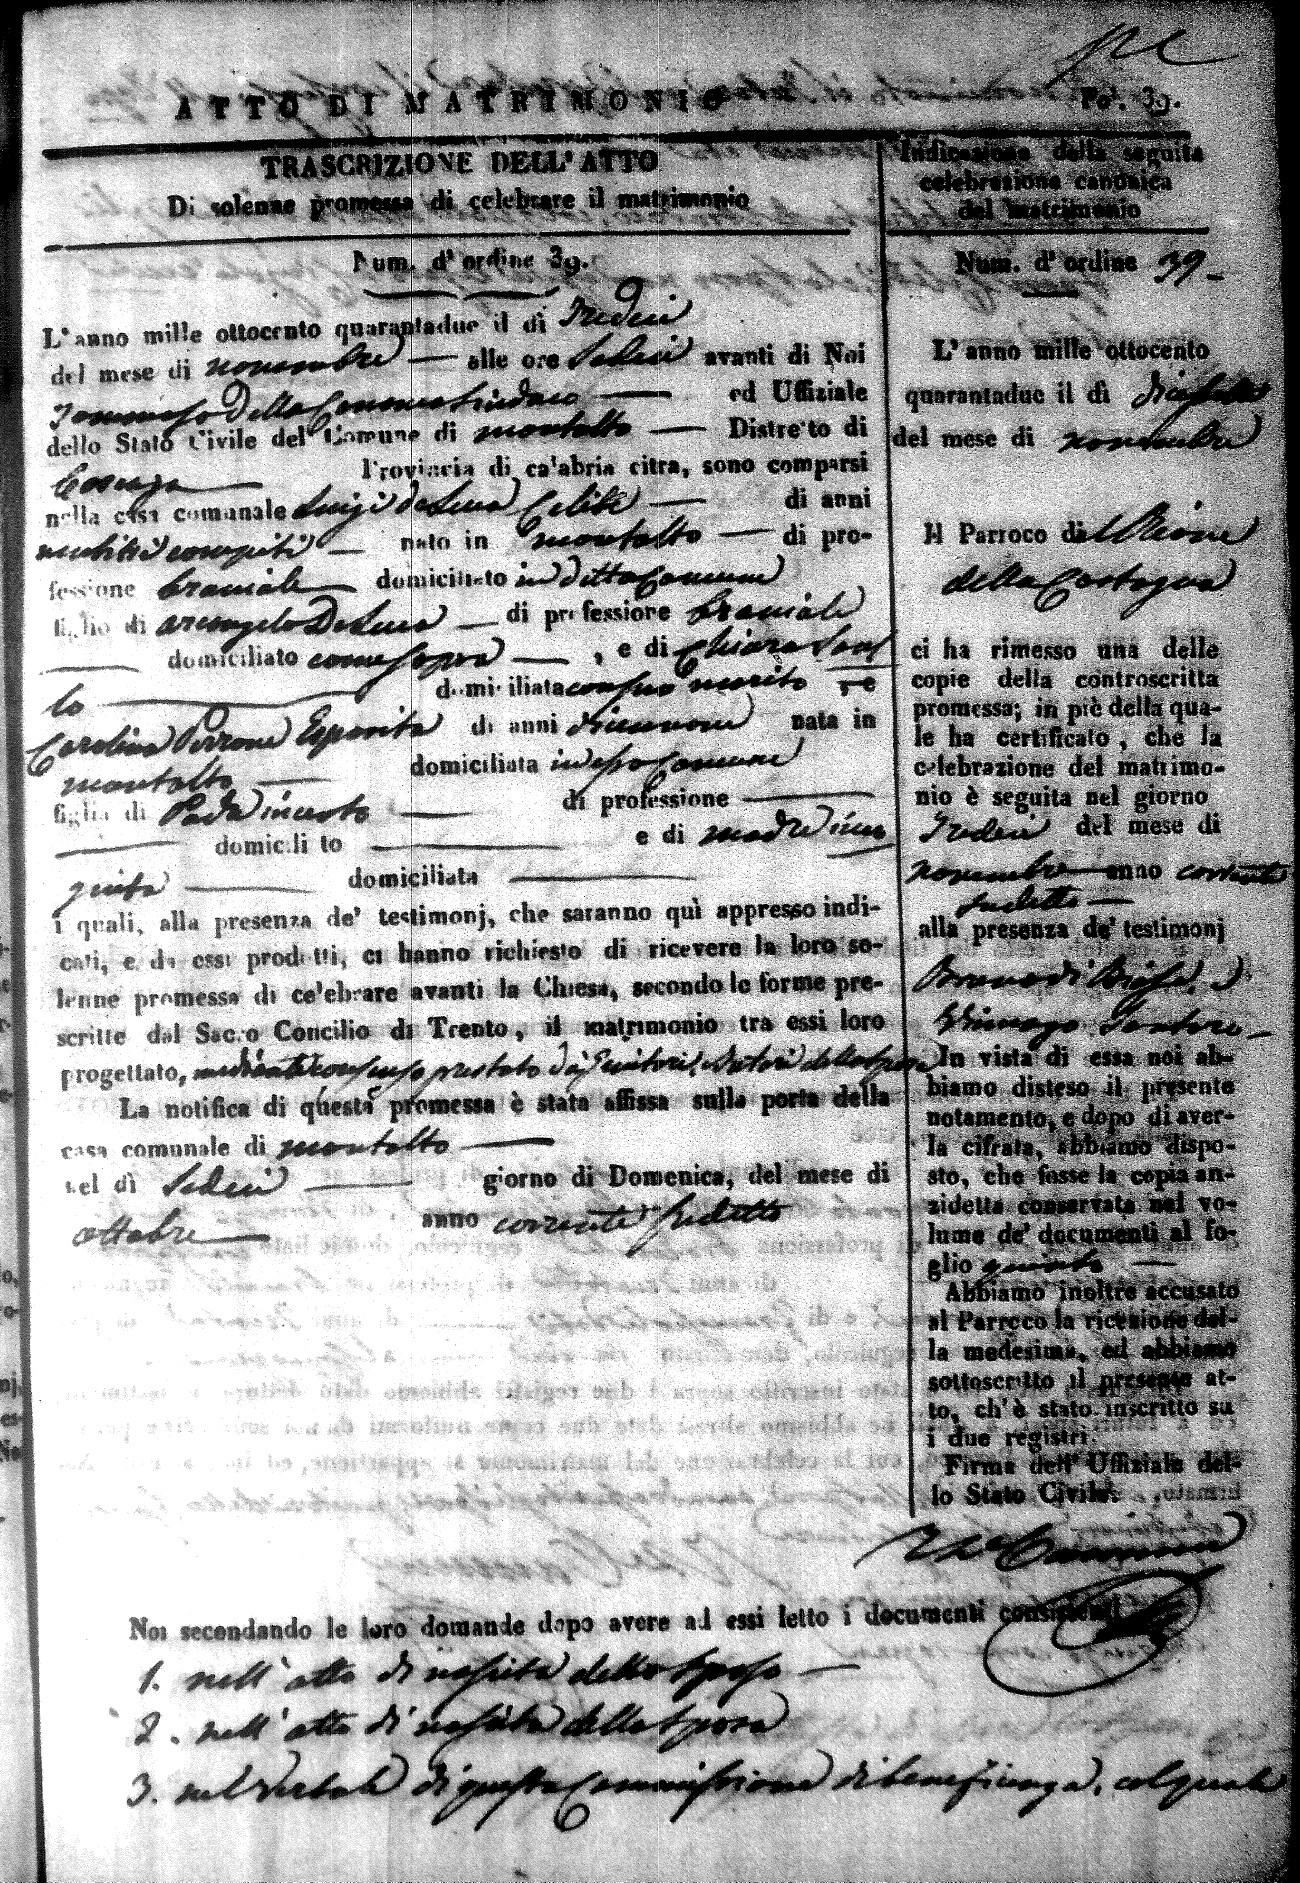 ATTO DI MATRIMONIO
Fo. 39.
TRASCRIZIONE DELL' ATTO
Di solenne promessa di celebrare il matrimonio
Num. d' ordine 39.
L' anno mille ottocento quarantadue il dì Tredici
del mese di novembre — alle ore Sedici avanti di Noi
Tommaso Della Cananea Sindaco — ed Uffiziale
dello Stato Civile del Comune di montalto — Distretto di
Cosenza — Provincia di calabria citra, sono comparsi
nella casa comunale Luigi de Luca Celibe — di anni
compiti — nato in montalto — di pro-
fessione bracciale domiciliato in detto Comune
figlio di arcangelo De Luca — di professione bracciale
— domiciliato come sopra — , e di Chiara
lo — domiciliata con suo marito , e
Carolina Perrone Esposita di anni diecinnove nata in
montalto — domiciliata in esso Comune
figlia di Padre incerto — di professione —
— domiciliato — e di madre ince
— domiciliata —
i quali, alla presenza de' testimonj, che saranno quì appresso indi-
cati, e da essi prodotti, ci hanno richiesto di ricevere la loro so-
lenne promessa di celebrare avanti la Chiesa, secondo le forme pre-
scritte dal Sacro Concilio di Trento, il matrimonio tra essi loro
progettato, mediante consenso prestato da' Genitori, e tutori della sposa
La notifica di questa promessa è stata affissa sulla porta della
casa comunale di montalto —
nel dì Sedici — giorno di Domenica, del mese di
ottobre — anno corrente sudetto
Indicazione della seguita
celebrazione canonica
del matrimonio
Num. d' ordine 39 -
L' anno mille ottocento
quarantadue il dì
del mese di novembre
Il Parroco del Rione
della
ci ha rimesso una delle
copie della controscritta
promessa; in piè della qua-
le ha certificato, che la
celebrazione del matrimo-
nio è seguita nel giorno
Tredici del mese di
novembre anno corrente
sudetto —
alla presenza de' testimonj
Bruno di Biase, e
Santoro -
In vista di essa noi ab-
biamo disteso il presente
notamento, e dopo di aver-
la cifrata, abbiamo dispo-
sto, che fosse la copia an-
zidetta conservata nel vo-
lume de' documenti al fo-
glio quinto —
Abbiamo inoltre accusato
al Parroco la ricezione del-
la medesima, ed abbiamo
sottoscritto il presente at-
to, ch' è stato inscritto su
i due registri.
Firma dell' Uffiziale del-
lo Stato Civile.
Noi secondando le loro domande dopo avere ad essi letto i documenti consistenti
1. nell' atto di nascita dello sposo —
2. nell' atto di nascita della sposa
3. nel verbale di questa Commissione di beneficenza, col quale